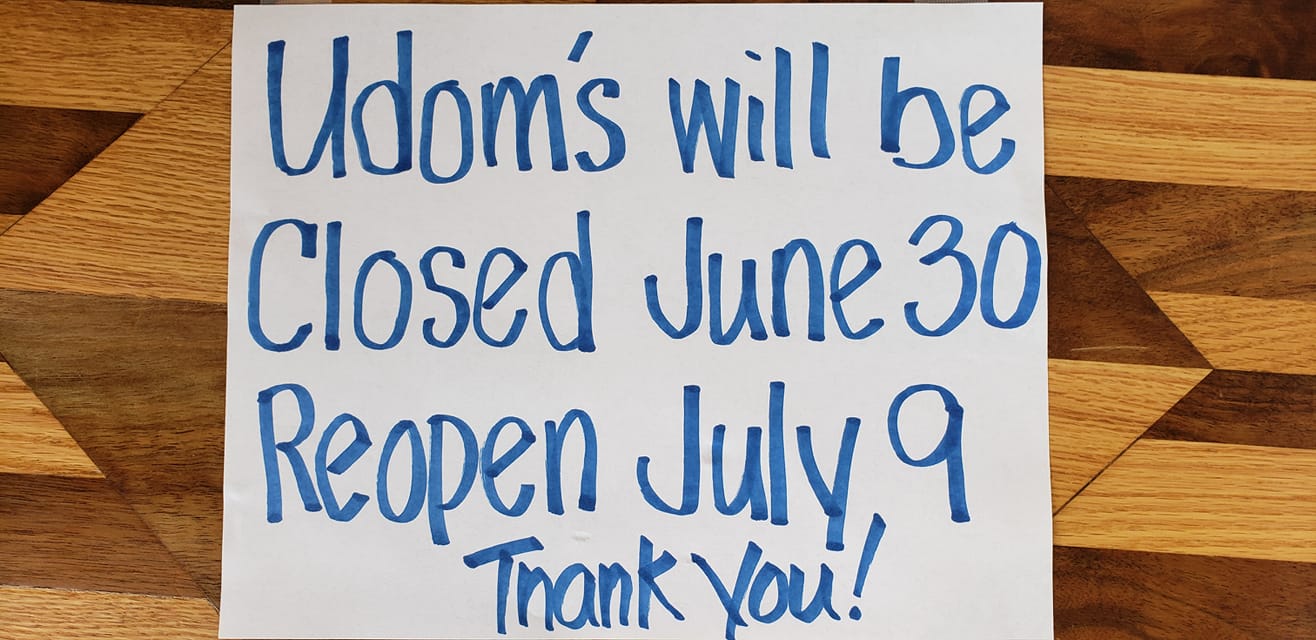 Udom's will be
Closed June 30
Reopen July 9
Thank You!